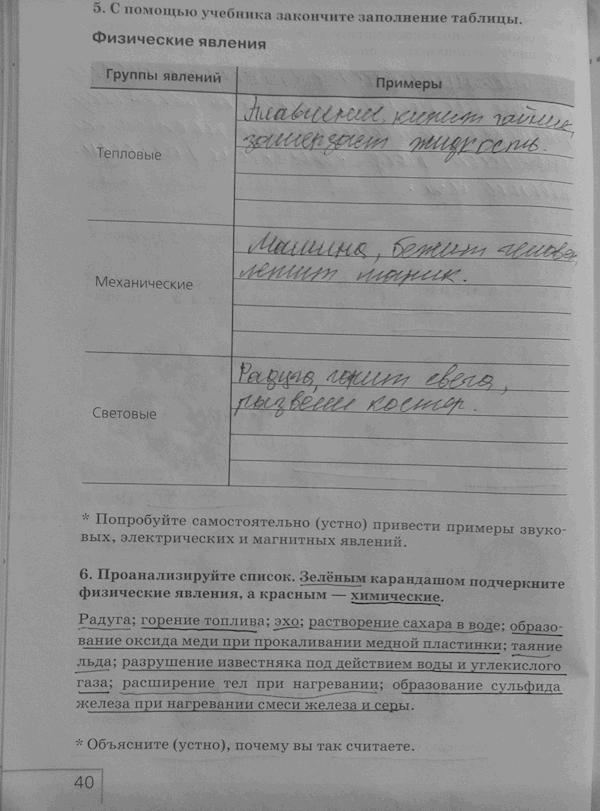 5. С помощью учебника закончите заполнение таблицы.
Физические явления
Группы явлений Примеры
Тепловые
Плавление, кипит чайник,
замерзает жидкость.
Механические
Машина, бежит человек,
летит шарик.
Световые
Радуга, горит свеча,
развели костер.
* Попробуйте самостоятельно (устно) привести примеры звуко-
вых, электрических и магнитных явлений.
6. Проанализируйте список. Зелёным карандашом подчеркните
физические явления, а красным — химические.
Радуга; горение топлива; эхо; растворение сахара в воде; образо-
вание оксида меди при прокаливании медной пластинки; таяние
льда; разрушение известняка под действием воды и углекислого
газа; расширение тел при нагревании; образование сульфида
железа при нагревании смеси железа и серы.
* Объясните (устно), почему вы так считаете.
40